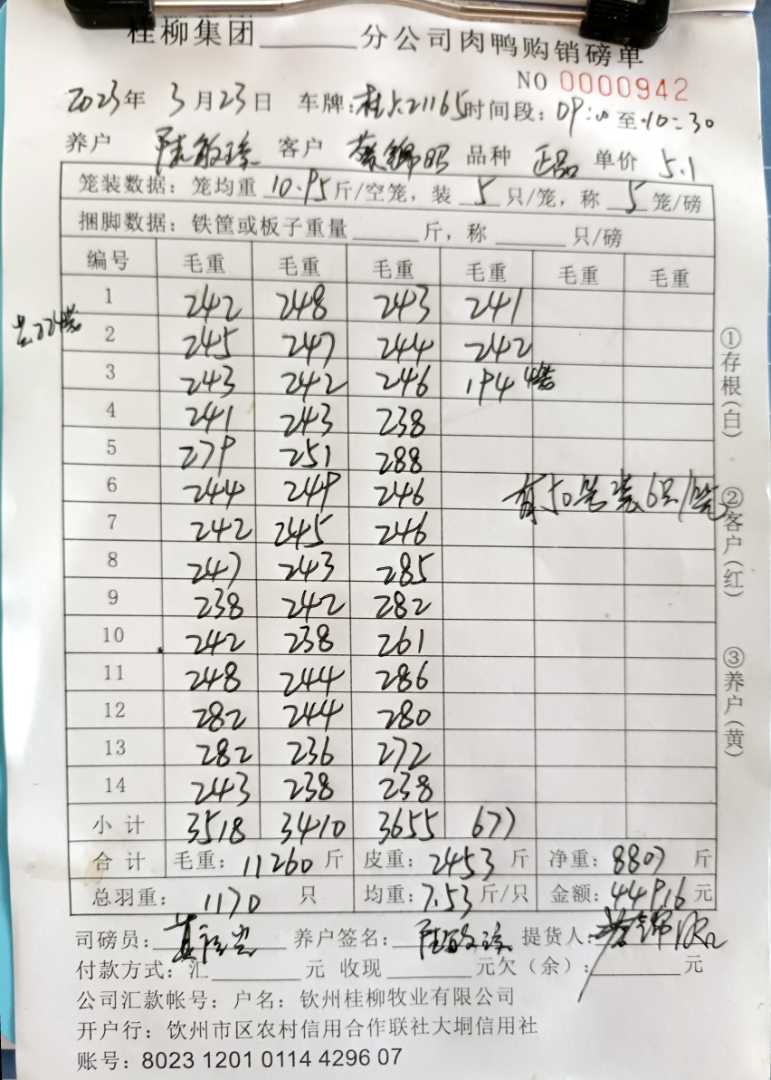 桂柳集团______分公司肉鸭购销磅单
NO 0000942
2023年 3月23日 车牌:桂A21165 时间段:09:00至10:30
养户 陆敏 客户 锦明 品种 正品 单价 5.1
笼装数据:笼均重 10.95 斤/空笼,装 5 只/笼,称 5 笼/磅
捆脚数据:铁筐或板子重量______斤,称______只/磅
编号 毛重 毛重 毛重 毛重 毛重 毛重
1 242 248 243 241
共224笼
2 245 247 244 242
3 243 242 246 194 4笼
4 241 243 238
5 279 251 288
6 244 249 246 有50笼装6只/笼
7 242 245 246
8 247 243 285
9 238 242 282
10 242 238 261
11 248 244 286
12 282 244 280
13 282 236 272
14 243 238 238
小计 3518 3410 3655 677
合计 毛重:11260斤 皮重:2453斤 净重:8807斤
总羽重:1170只 均重:7.53斤/只 金额:44916元
司磅员: 养户签名:陆敏 提货人:锦
付款方式:汇______元 收现______元欠(余):______元
公司汇款帐号:户名:钦州桂柳牧业有限公司
开户行:钦州市区农村信用合作联社大垌信用社
账号:8023 1201 0114 4296 07
①存根(白)
②客户(红)
③养户(黄)